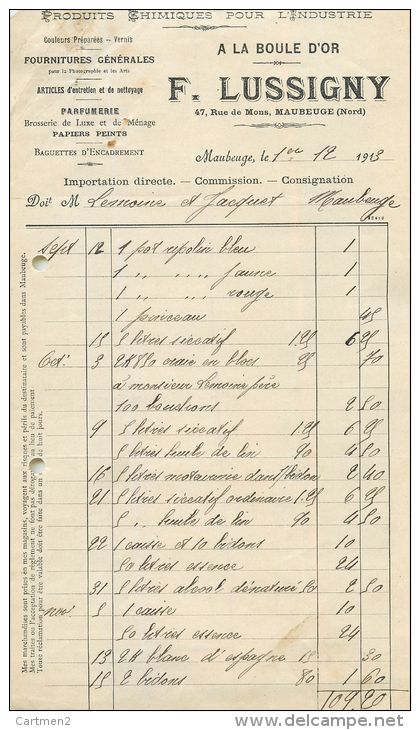 PRODUITS CHIMIQUES POUR L'INDUSTRIE
Couleurs Préparées — Vernis
FOURNITURES GÉNÉRALES
pour la Photographie et les Arts
ARTICLES d'entretien et de nettoyage
PARFUMERIE
Brosserie de Luxe et de Ménage
PAPIERS PEINTS
BAGUETTES D'ENCADREMENT
A LA BOULE D'OR
F. LUSSIGNY
47, Rue de Mons, MAUBEUGE (Nord)
Maubeuge, le 1er 12 1913
Importation directe. — Commission. — Consignation
Doit M Lemoine et Jacquet Maubeuge
Sept 12 1 pot ripolin bleu 1
1 " " jaune 1
1 " " rouge 1
1 pinceau 45
15 5 litres siccatif 1.25 6 25
Oct. 3 2K850 craie en blocs 25 70
à monsieur Lemoine père
100 bouchons 2 50
9 5 litres siccatif 1.25 6 25
5 litres huile de lin 90 4 50
16 5 litres dans 1 bidon 2 40
21 5 litres siccatif ordinaire 1.25 6 25
5 " huile de lin 90 4 50
22 1 caisse et 10 bidons 10
50 litres essence 24
31 5 litres alcool dénaturé 50 2 50
Nov. 5 1 caisse 10
50 litres essence 24
13 2K blanc d'espagne 15 30
15 2 bidons 80 1 60
109.20
Mes marchandises sont prises en mes magasins, voyagent aux risques et périls du destinataire et sont payables dans Maubeuge.
Mes traites ou l'acceptation de règlement ne font pas dérogation au lieu de paiement
Toute réclamation pour être valable doit être faite dans un délai de huit jours.
Cartmen2
www.delcampe.net